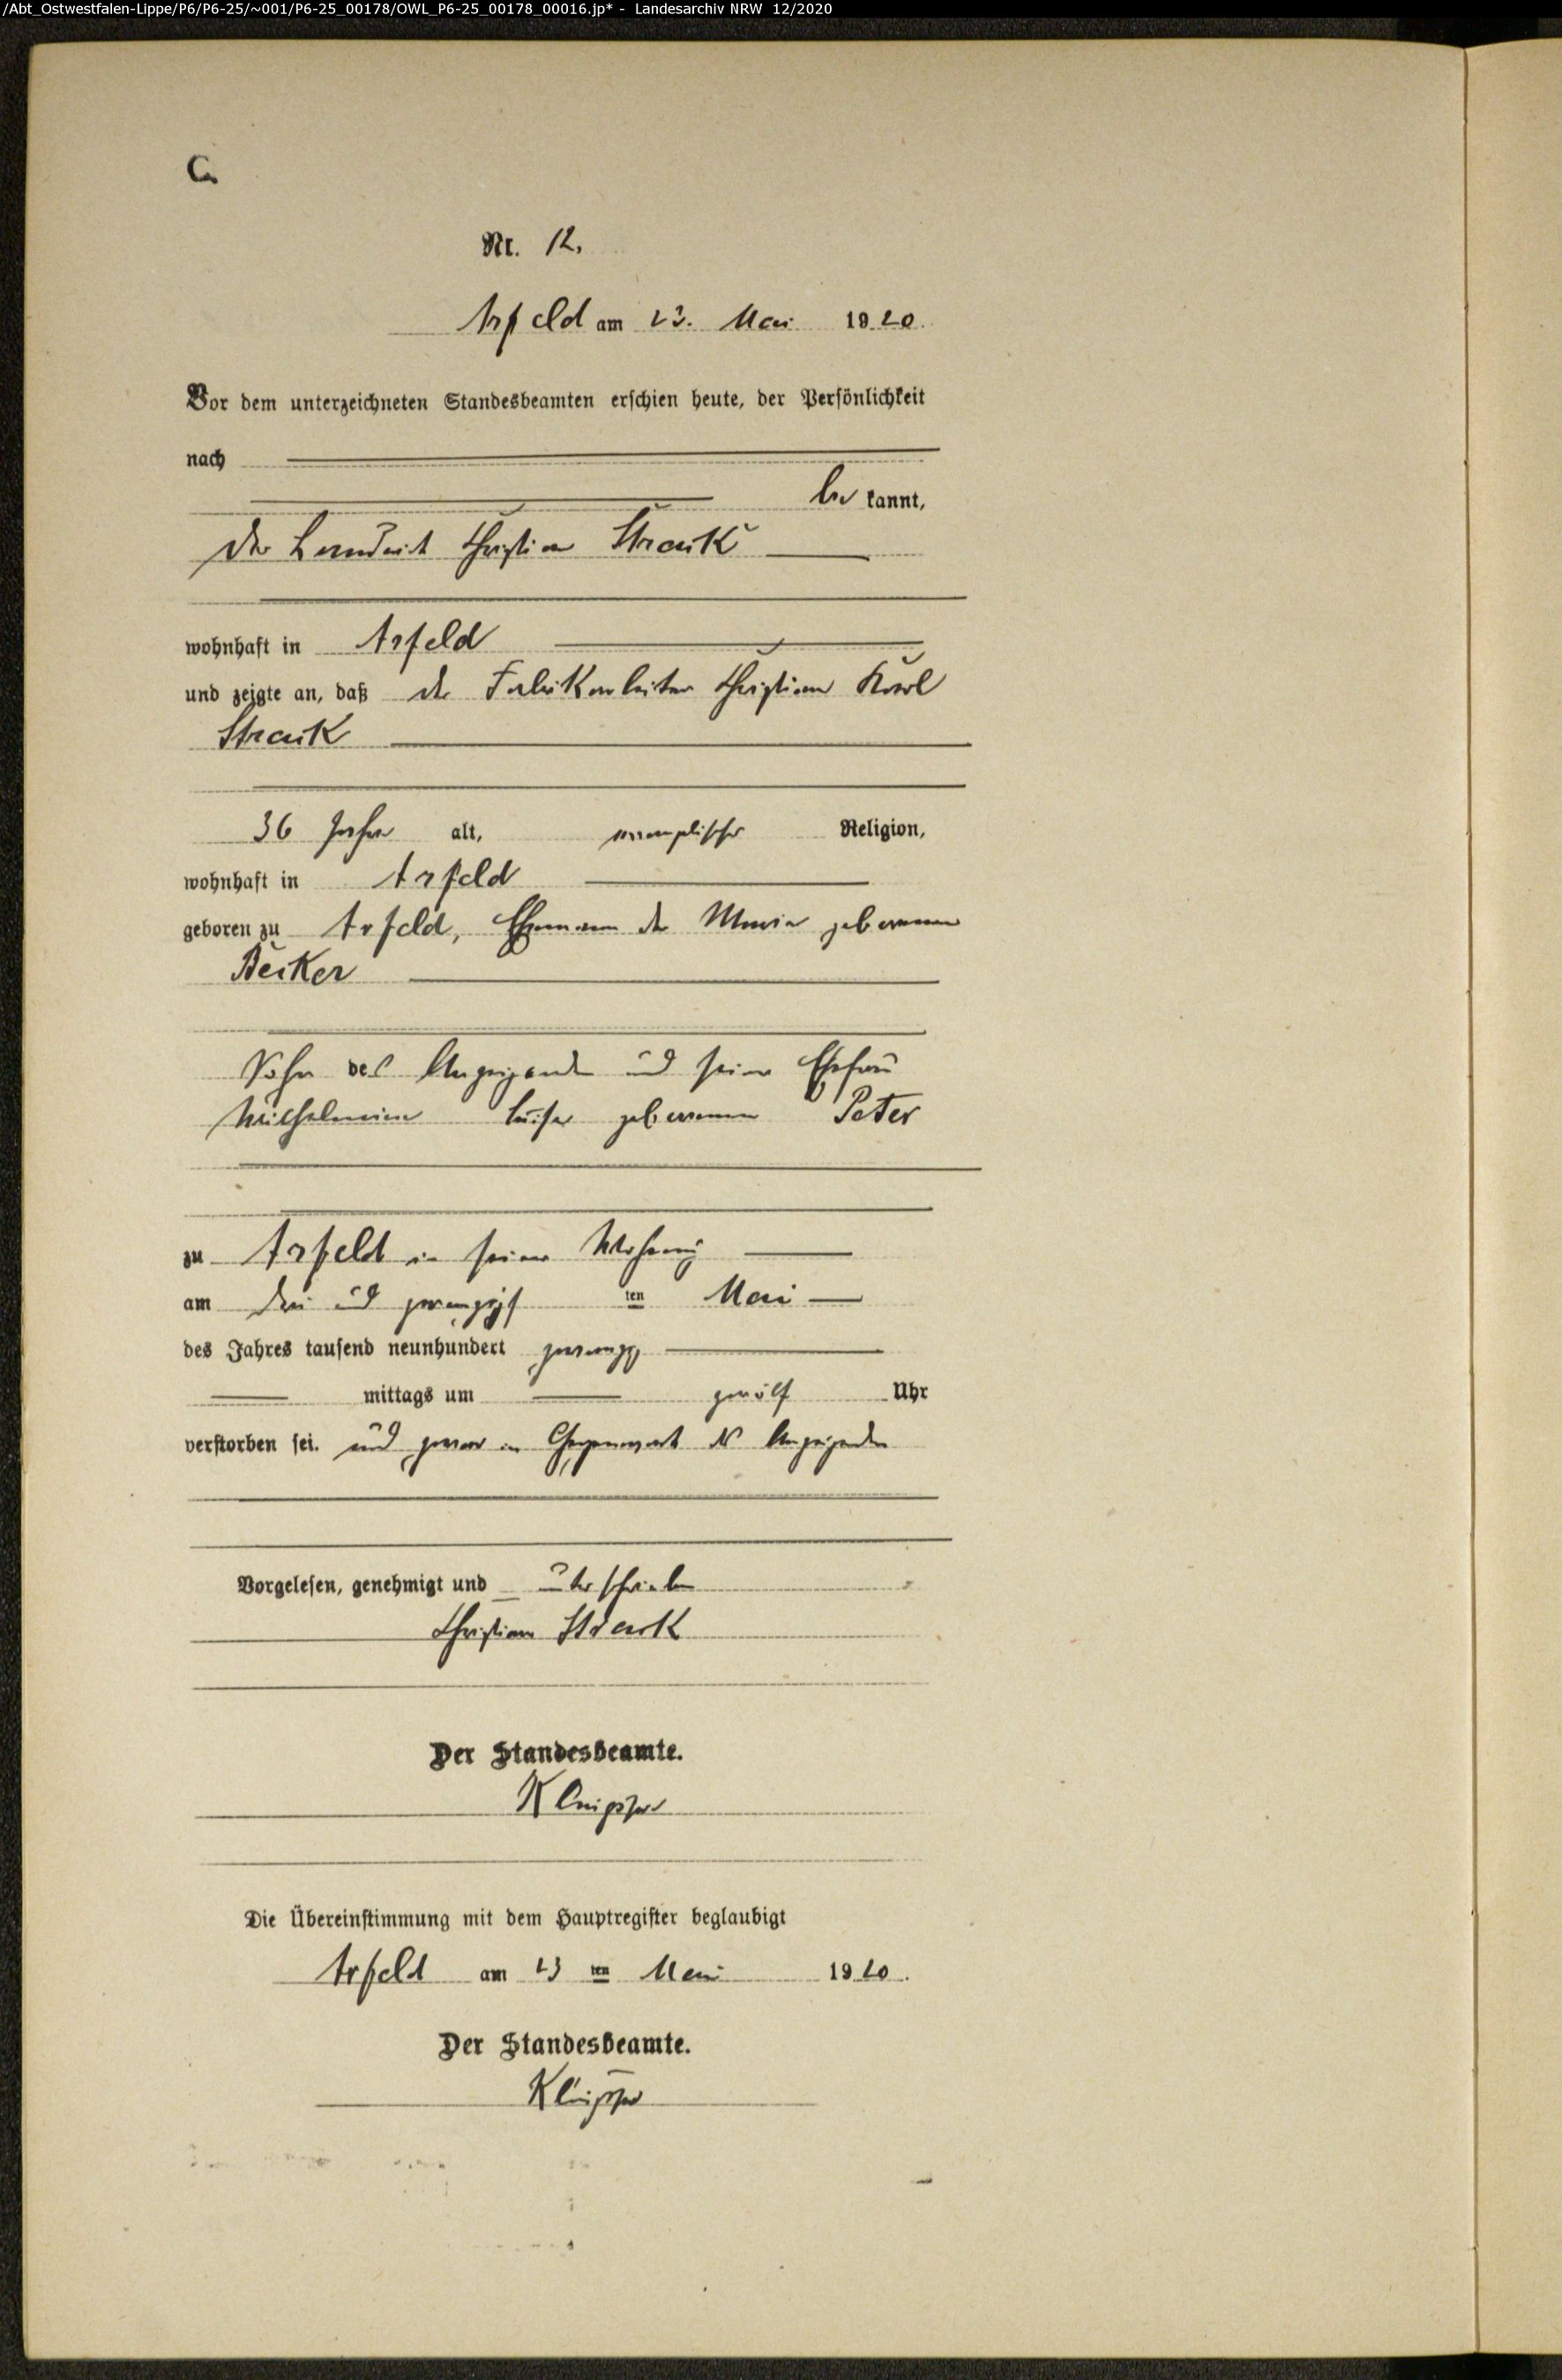 /Abt_Ostwestfalen-Lippe/P6/P6-25/~001/P6-25_00178/OWL_P6-25_00178_00016.jp* - Landesarchiv NRW 12/2020
C.
Nr. 12.
Arfeld am 23. Mai 1920.
Vor dem unterzeichneten Standesbeamten erschien heute, der Persönlichkeit
nach
be kannt,
der Landwirt Christian Strack
wohnhaft in Arfeld
und zeigte an, daß der Fabrikarbeiter Christian Karl
Strack
36 Jahre alt, evangelischer Religion,
wohnhaft in Arfeld
geboren zu Arfeld, Ehemann der Maria geborenen
Becker
Sohn des Anzeigenden und seiner Ehefrau
Wilhelmine Luise geborenen Peter
zu Arfeld in seiner Wohnung
am drei und zwanzigst ten Mai
des Jahres tausend neunhundert zwanzig
mittags um zwölf Uhr
verstorben sei. und zwar in Gegenwart des Anzeigenden
Vorgelesen, genehmigt und unterschrieben
Christian Strack
Der Standesbeamte.
Die Übereinstimmung mit dem Hauptregister beglaubigt
Arfeld am 23 ten Mai 1920.
Der Standesbeamte.